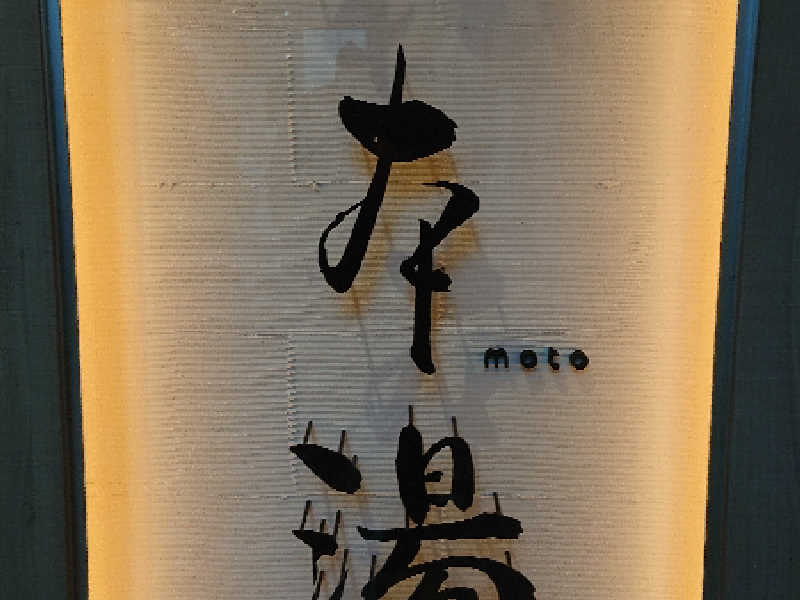 本
moto
湯